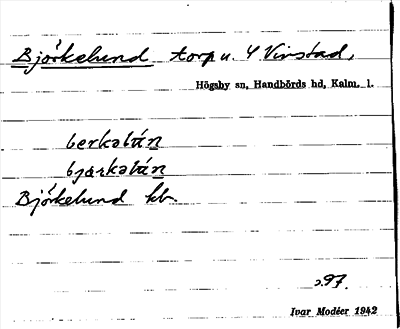 Björkelund torp u. 4 Vinstad,
Högsby sn, Handbörds hd, Kalm. l.
berkəlún
bjärkəlún
Björkelund kb.
s. 97.
Ivar Modéer 1942